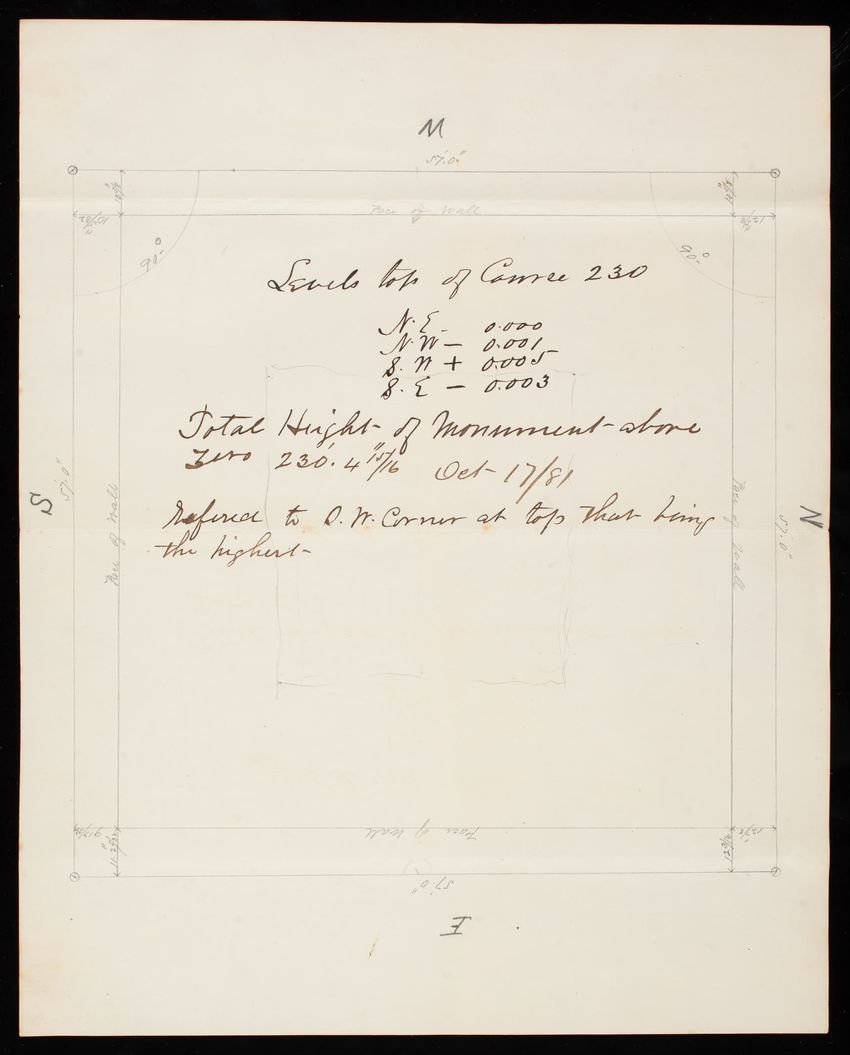 W
57'.0"
Face of Wall
90°
90°
Levels top of Course 230
N.E. 0.000
N.W — 0.001
S.W + 0.005
S.E — 0.003
Total Height of Monument above
Zero 230'. 4 15/16" Oct 17/81
Refered to S.W. Corner at top that being
the highest
S
57'.0"
Face of Wall
Face of Wall
57'.0"
N
Face of Wall
57'.0"
E